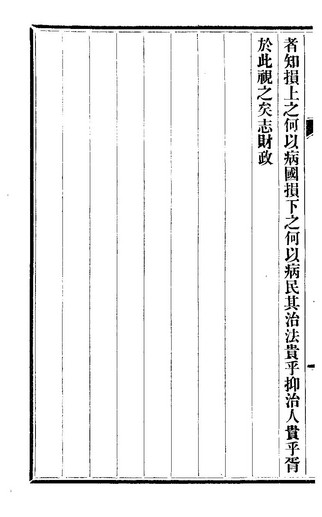 者知損上之何以病國損下之何以病民其治法貴乎抑治人貴乎胥
於此視之矣志財政